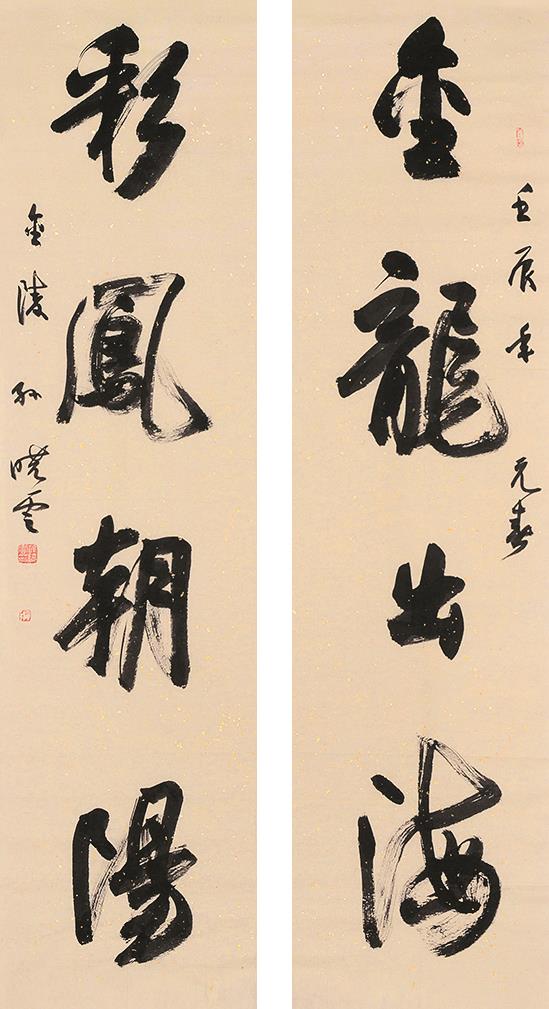 壬辰年 元春
金龍出海
彩鳳朝陽
金陵 孙晓云